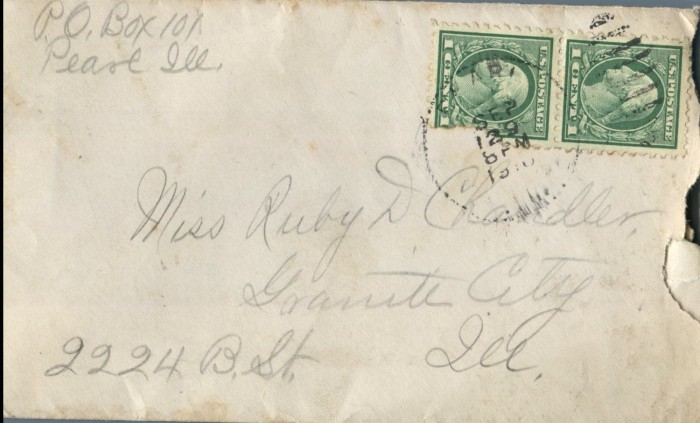 P.O. Box 101
Pearl Ill.
U.S. POSTAGE
1 CENT 1
U.S. POSTAGE
1 CENT 1
Miss Ruby D Chandler.
Granite City
2224 B. St. Ill.